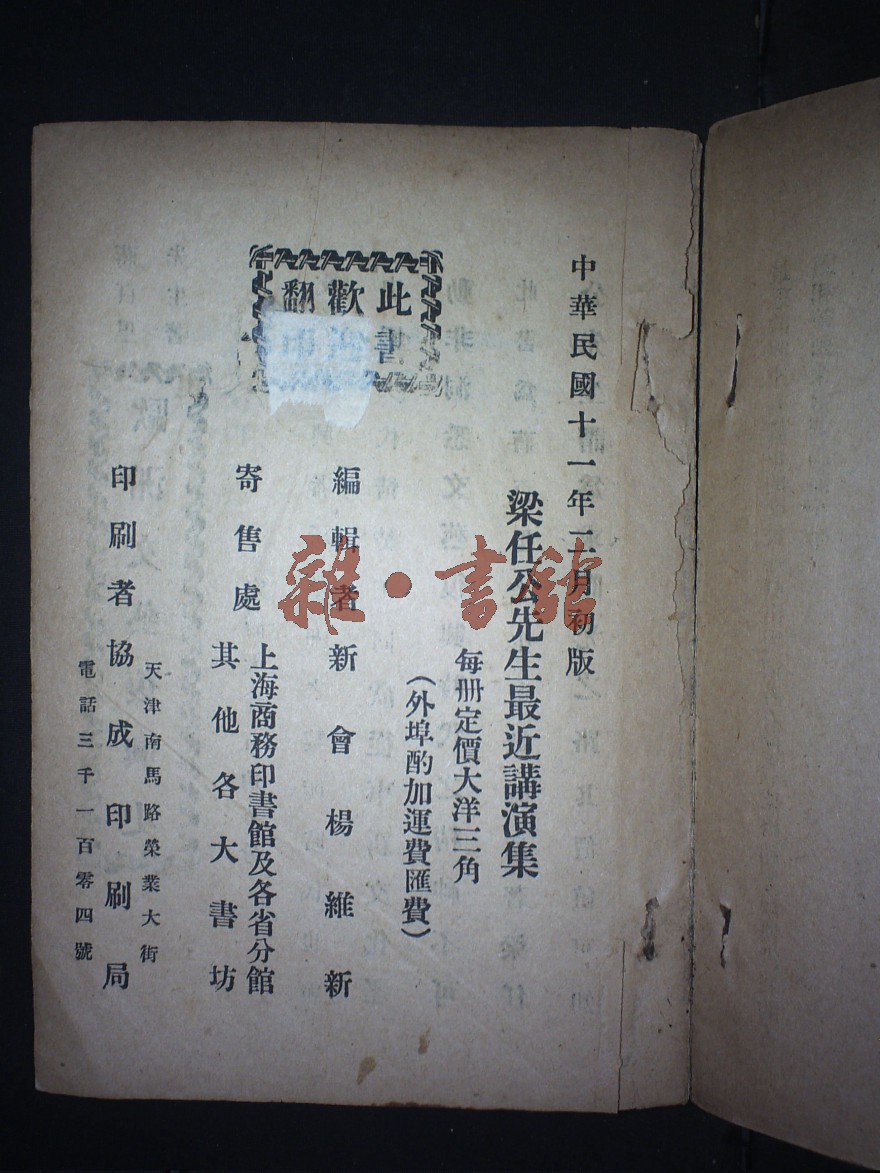 中華民國十一年二月初版
梁任公先生最近講演集
每册定價大洋三角
（外埠酌加運費匯費）
此書
歡
翻
編輯者新會楊維新
寄售處
上海商務印書館及各省分館
其他各大書坊
印刷者協成印刷局
天津南馬路榮業大街
電話三千一百零四號
雜·書館